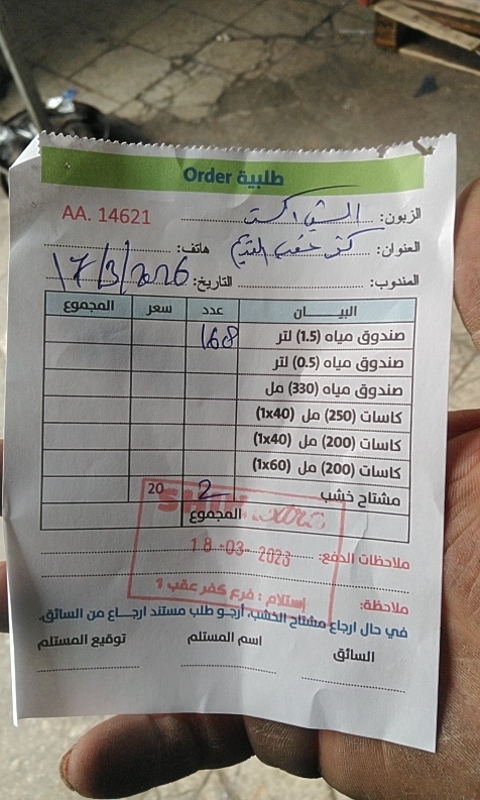 طلبية Order
AA. 14621
الزبون: الشني اكسترا
العنوان: كفر عقب القديم هاتف:
المندوب: التاريخ: 17/3/2026
البيـــان عدد سعر المجموع
صندوق مياه (1.5) لتر 168
صندوق مياه (0.5) لتر
صندوق مياه (330) مل
كاسات (250) مل (1x40)
كاسات (200) مل (1x40)
كاسات (200) مل (1x60)
مشتاح خشب 2 20
المجموع
extra
ملاحظات الدفع:
18-03-2026
ملاحظة:
إستلام : فرع كفر عقب 1
في حال ارجاع مشتاح الخشب، أرجو طلب مستند ارجاع من السائق.
السائق اسم المستلم توقيع المستلم